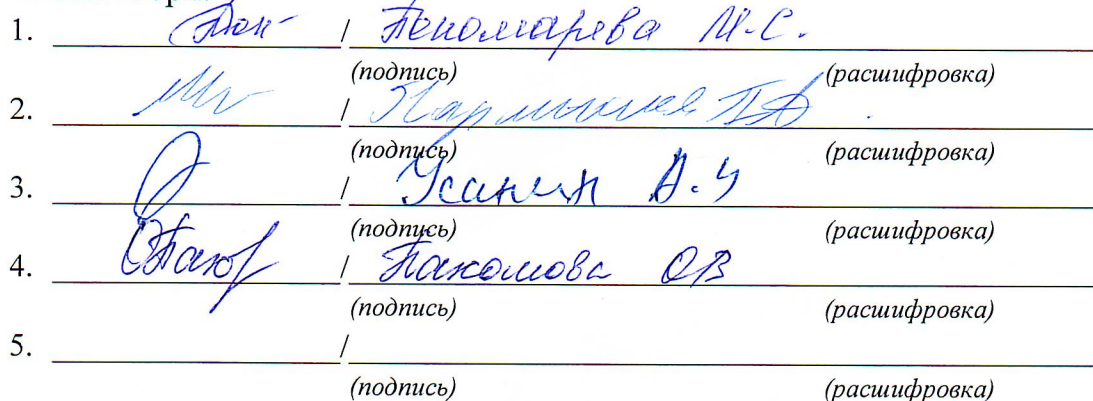 1. / Пономарева М.С.
(подпись) (расшифровка)
2. /
(подпись) (расшифровка)
3. / Усанин А.Ч
(подпись) (расшифровка)
4. / Пахомова ОВ
(подпись) (расшифровка)
5. /
(подпись) (расшифровка)